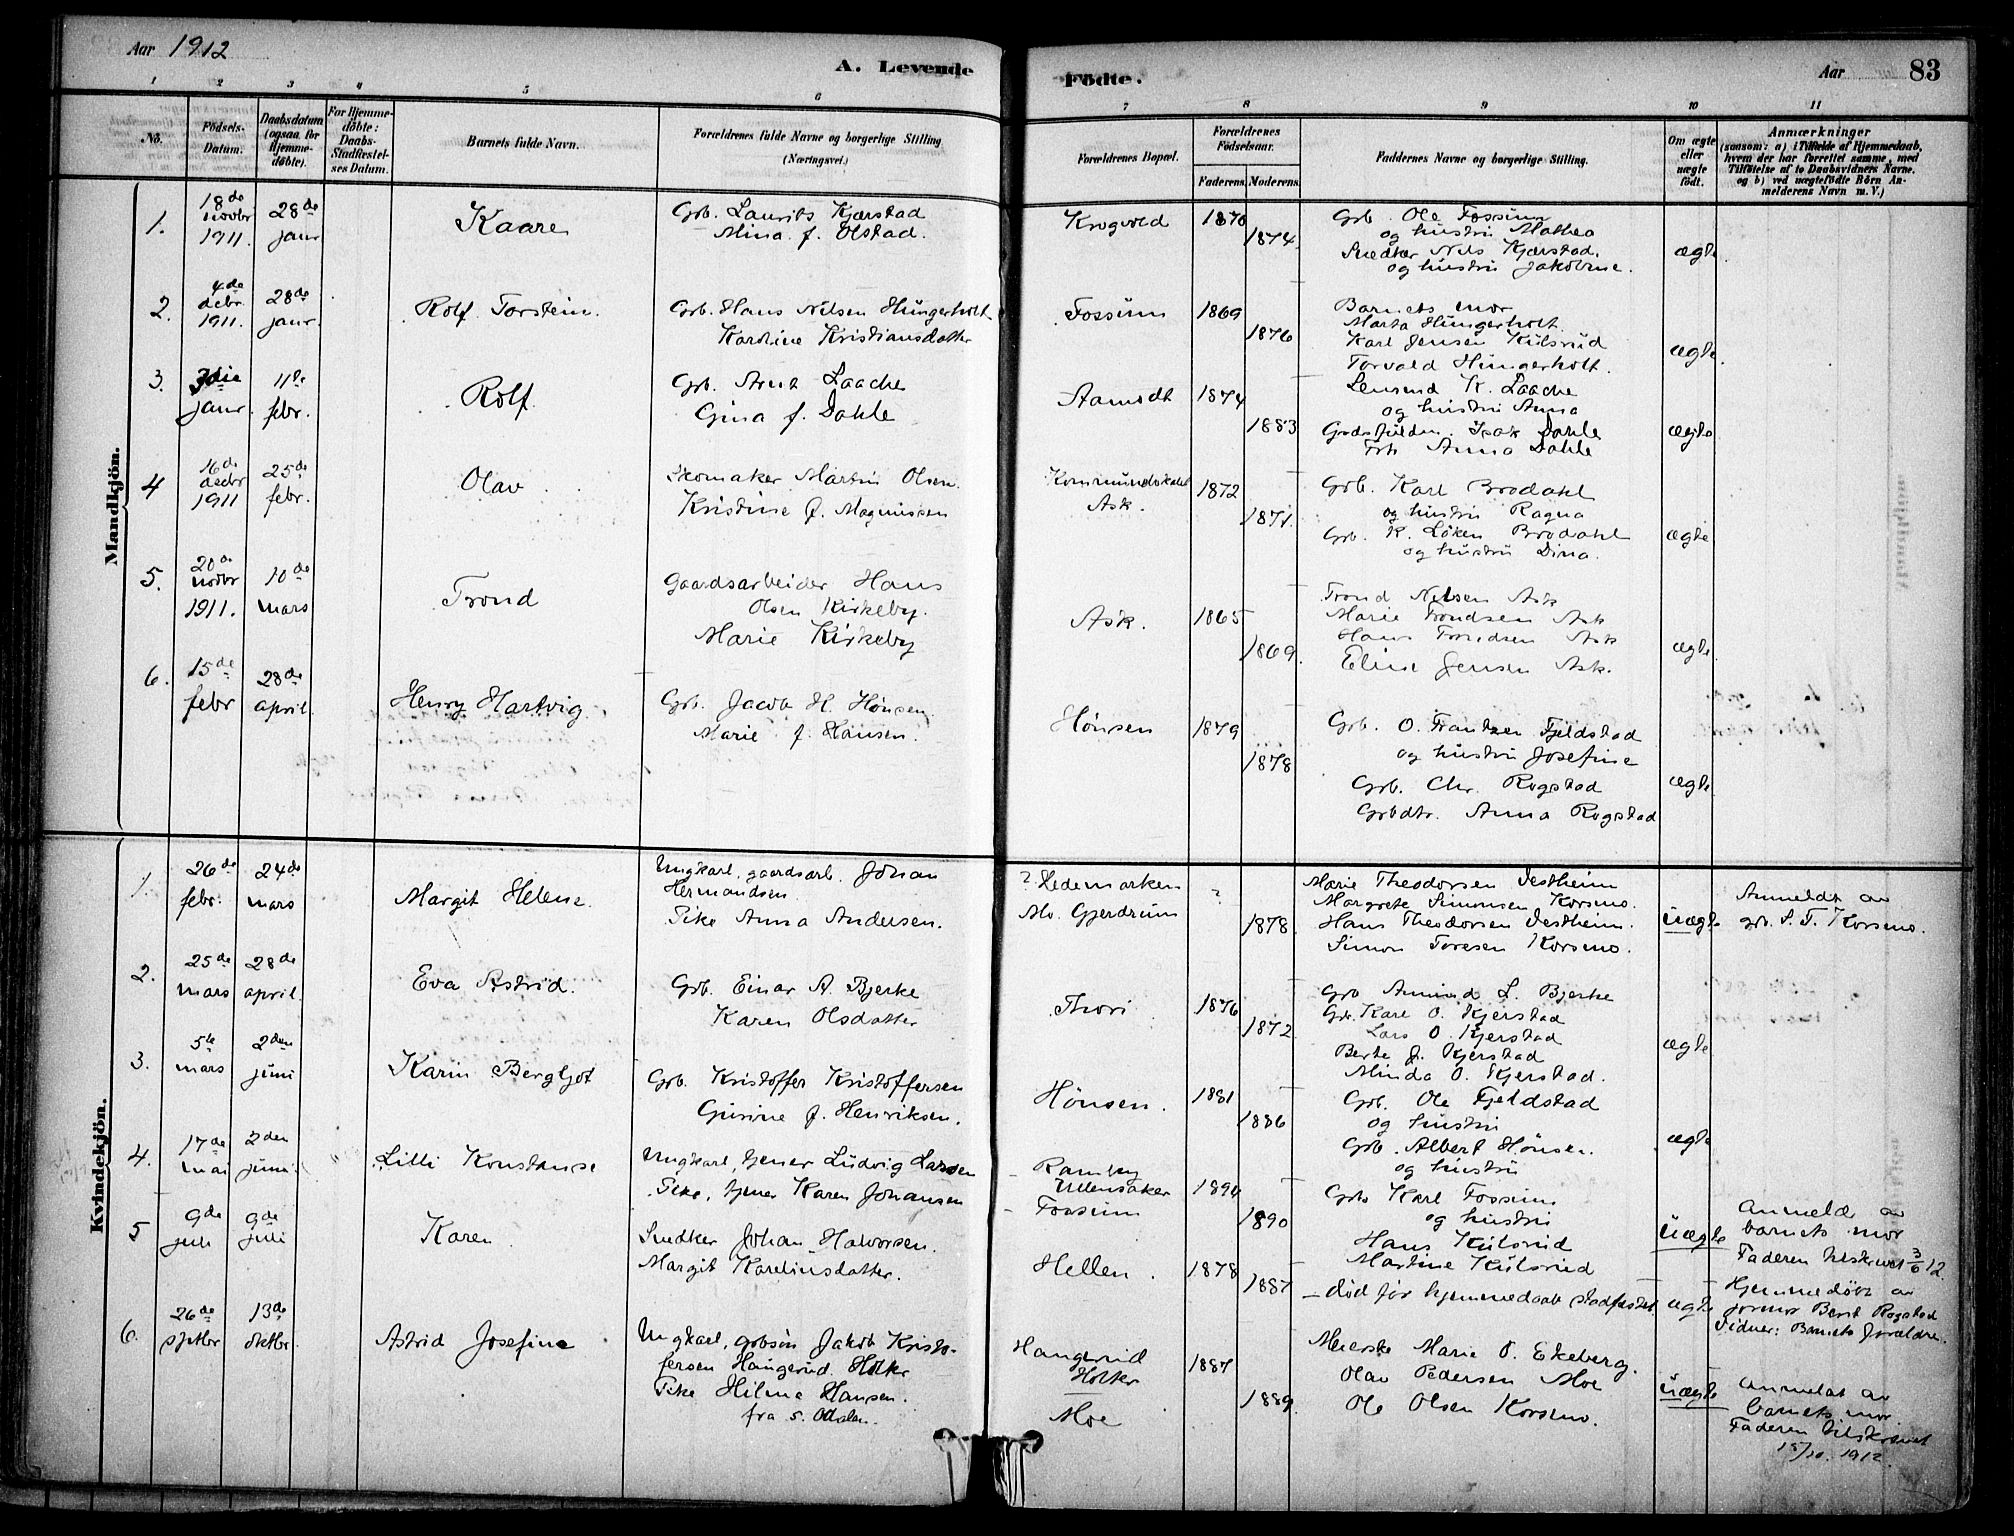 Aar 1912
A. Levende
Födte.
Aar 83
1 2 3 4 5 6 7 8 9 10 11
No.
Födsels-
Datum.
Daabsdatum
(ogsaa for
Hjemme-
döbte).
For Hjemme-
döbte:
Daabs-
Stadfæstel-
ses Datum.
Barnets fulde Navn.
Forældrenes fulde Navne og borgerlige Stilling
(Næringsvei.)
Forældrenes Bopæl.
Forældrenes
Födselsaar.
Faderens. Moderens.
Faddernes Navne og borgerlige Stilling.
Om ægte
eller
uægte
födt.
Anmærkninger
(saasom: a) i Tilfælde af Hjemmedaab,
hvem der har forrettet samme, med
Tilföielse af to Daabsvidners Navne.
og b) ved uægtefödte Börn An-
melderens Navn m. V.)
Mandkjön.
1.
18de
novbr
1911.
28de
janr
Kaare
Grb. Laurits Kjærstad
Mina f. Olstad.
Krogvold
1870
1874.
Grb. Ole Fossum
og hustru Mathea
Snedker Nils Kjærstad.
og hustru Jakobine.
ægte.
2.
4de
debr
1911.
28de
janr.
Rolf Torstein.
Grb. Hans Nilsen Hungerholt
Karoline Kristiansdatter
Fossum
1869
1876
Barnets mor
Marta Hungerholt.
Karl Jensen Kulsrud
Torvald Hungerholt.
ægte.
3.
janr.
11te
febr.
Rolf.
Grb. Arnt Laache
Gina f. Dahle
Aamodt
1874
1883
Lensmd K. Laache
og hustru Anna
Isak Dahle
Anna Dahle
ægte
4
16de
decbr
1911
25de
febr.
Olav
Skomaker Martin Olsen.
Kristine f. Magnussen
Ask.
1872
1871.
Grb. Karl Brodahl
og hustru Ragna
Grb. K. Løken Brodahl
og hustru Dina.
ægte
5.
20de
novbr
1911.
10de
mars
Trond
Gaardsarbeider Hans
Olsen Kirkeby.
Marie Kirkeby
Ask.
1865
1869.
Trond Nilsen Ask
Marie Trondsen Ask
Hans Trondsen Ask
Eline Jensen Ask.
ægte.
6.
15de
febr
28de
april.
Henry Hartvig.
Grb. Jacob H. Hønsen.
Marie f. Hansen.
Hønsen
1879
1878
Grb. O. Frantzen Fjeldstad
og hustru Josefine
Grb. Chr. Rogstad
Grbdtr. Anna Rogstad
ægte.
Kvindekjön.
1.
26de
febr.
24de
mars
Margit Helene.
Ungkarl, gaardsarb. Johan
Hermandsen.
Pike Anna Andersen.
? Hedemarken
Mo. Gjerdrum
?
1878
Marie Theodorsen Vestheim
Margrete Simonsen Korsmo.
Hans Theodorsen Vestheim.
Simon Toresen Korsmo.
uægte
Anmeldt av
grb. S. T. Korsmo.
2.
25de
mars
28de
april.
Eva Astrid.
Grb. Einar A. Bjerke
Karen Olsdatter
Thori
1876
1872
Grb Amund L. Bjerke
Grb. Karl O. Kjerstad
Lars O. Kjerstad
Berte J. Kjerstad
Minda O. Kjerstad.
ægte
3.
5te
mars
2den
juni
Karin Bergljot
Grb. Kristoffer Kristoffersen
Gusine f. Henriksen.
Hønsen.
1881
1886
Grb. Ole Fjeldstad
og hustru
Grb. Albert Hønsen
og hustru
ægte
4.
17de
mai
2den
juni.
Lilli Konstanse
Ungkarl, tjener Ludvig Larsen
Pike, tjener Karen Johansen
Ramby
Ullensaker
Fossum
1894
1890
Grb Karl Fossum
og hustru
Hans Kulsrud
Martine Kulsrud
uægte
Anmeldt av
barnets mor
Faderen tilskrevet 3/6 12.
5
9de
juli
9de
juli
Karen
Snedker Johan Halvorsen.
Margit Karelinsdatter.
Hellen.
1878
1887
– død før hjemmedaab stadfæstet
ægte
Hjemmedøbt av
jormor Berit Rogstad
Vidner: Barnets foræl­dre.
6.
26de
sptbr
13de
oktbr.
Astrid Josefine
Ungkarl, grbsøn Jakob Kristo-
fersen Haugerud, Holter
Pike Hilma Hansen.
fra s. Odalen.
Haugerud
Holter
Moe
1887
1889.
Meierske Marie O. Ekeberg.
Olav Pedersen Moe
Ole Olsen Korsmo.
uægte
Anmeldt av
barnets mor.
Faderen tilskrevet
15/10. 1912.